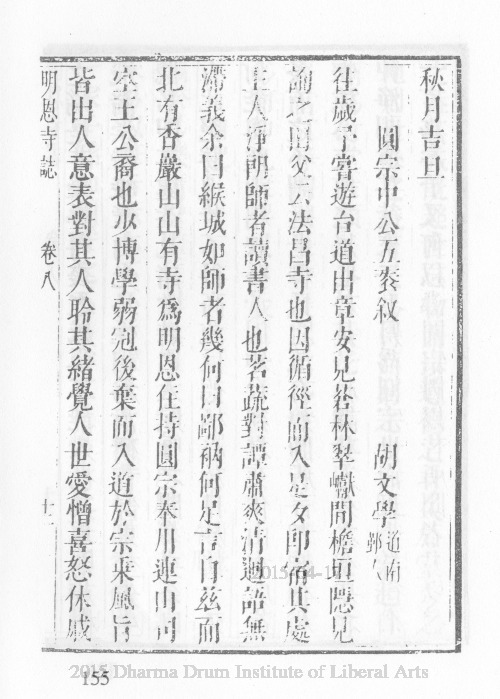 秋月吉旦
圓宗中公五袠叙 胡文學道南鄞人
往歲予嘗遊台道出章安見若林翠巘間檐垣隱見
詢之田父云法昌寺也因循徑而入是夕即宿其處
主人淨朗師者讀書人也茗蔬對譚肅爽清迥語無
滯義余曰緱城如師者幾何曰鄙衲何足言自茲而
北有香嚴山山有寺為明恩住持圓宗奉川連山司
空王公裔也少博學弱冠後棄而入道於宗乘風旨
皆出人意表對其人聆其緒覺人世愛憎喜怒休戚
明恩寺誌 卷八 十一
155
2015 Dharma Drum Institute of Liberal Arts